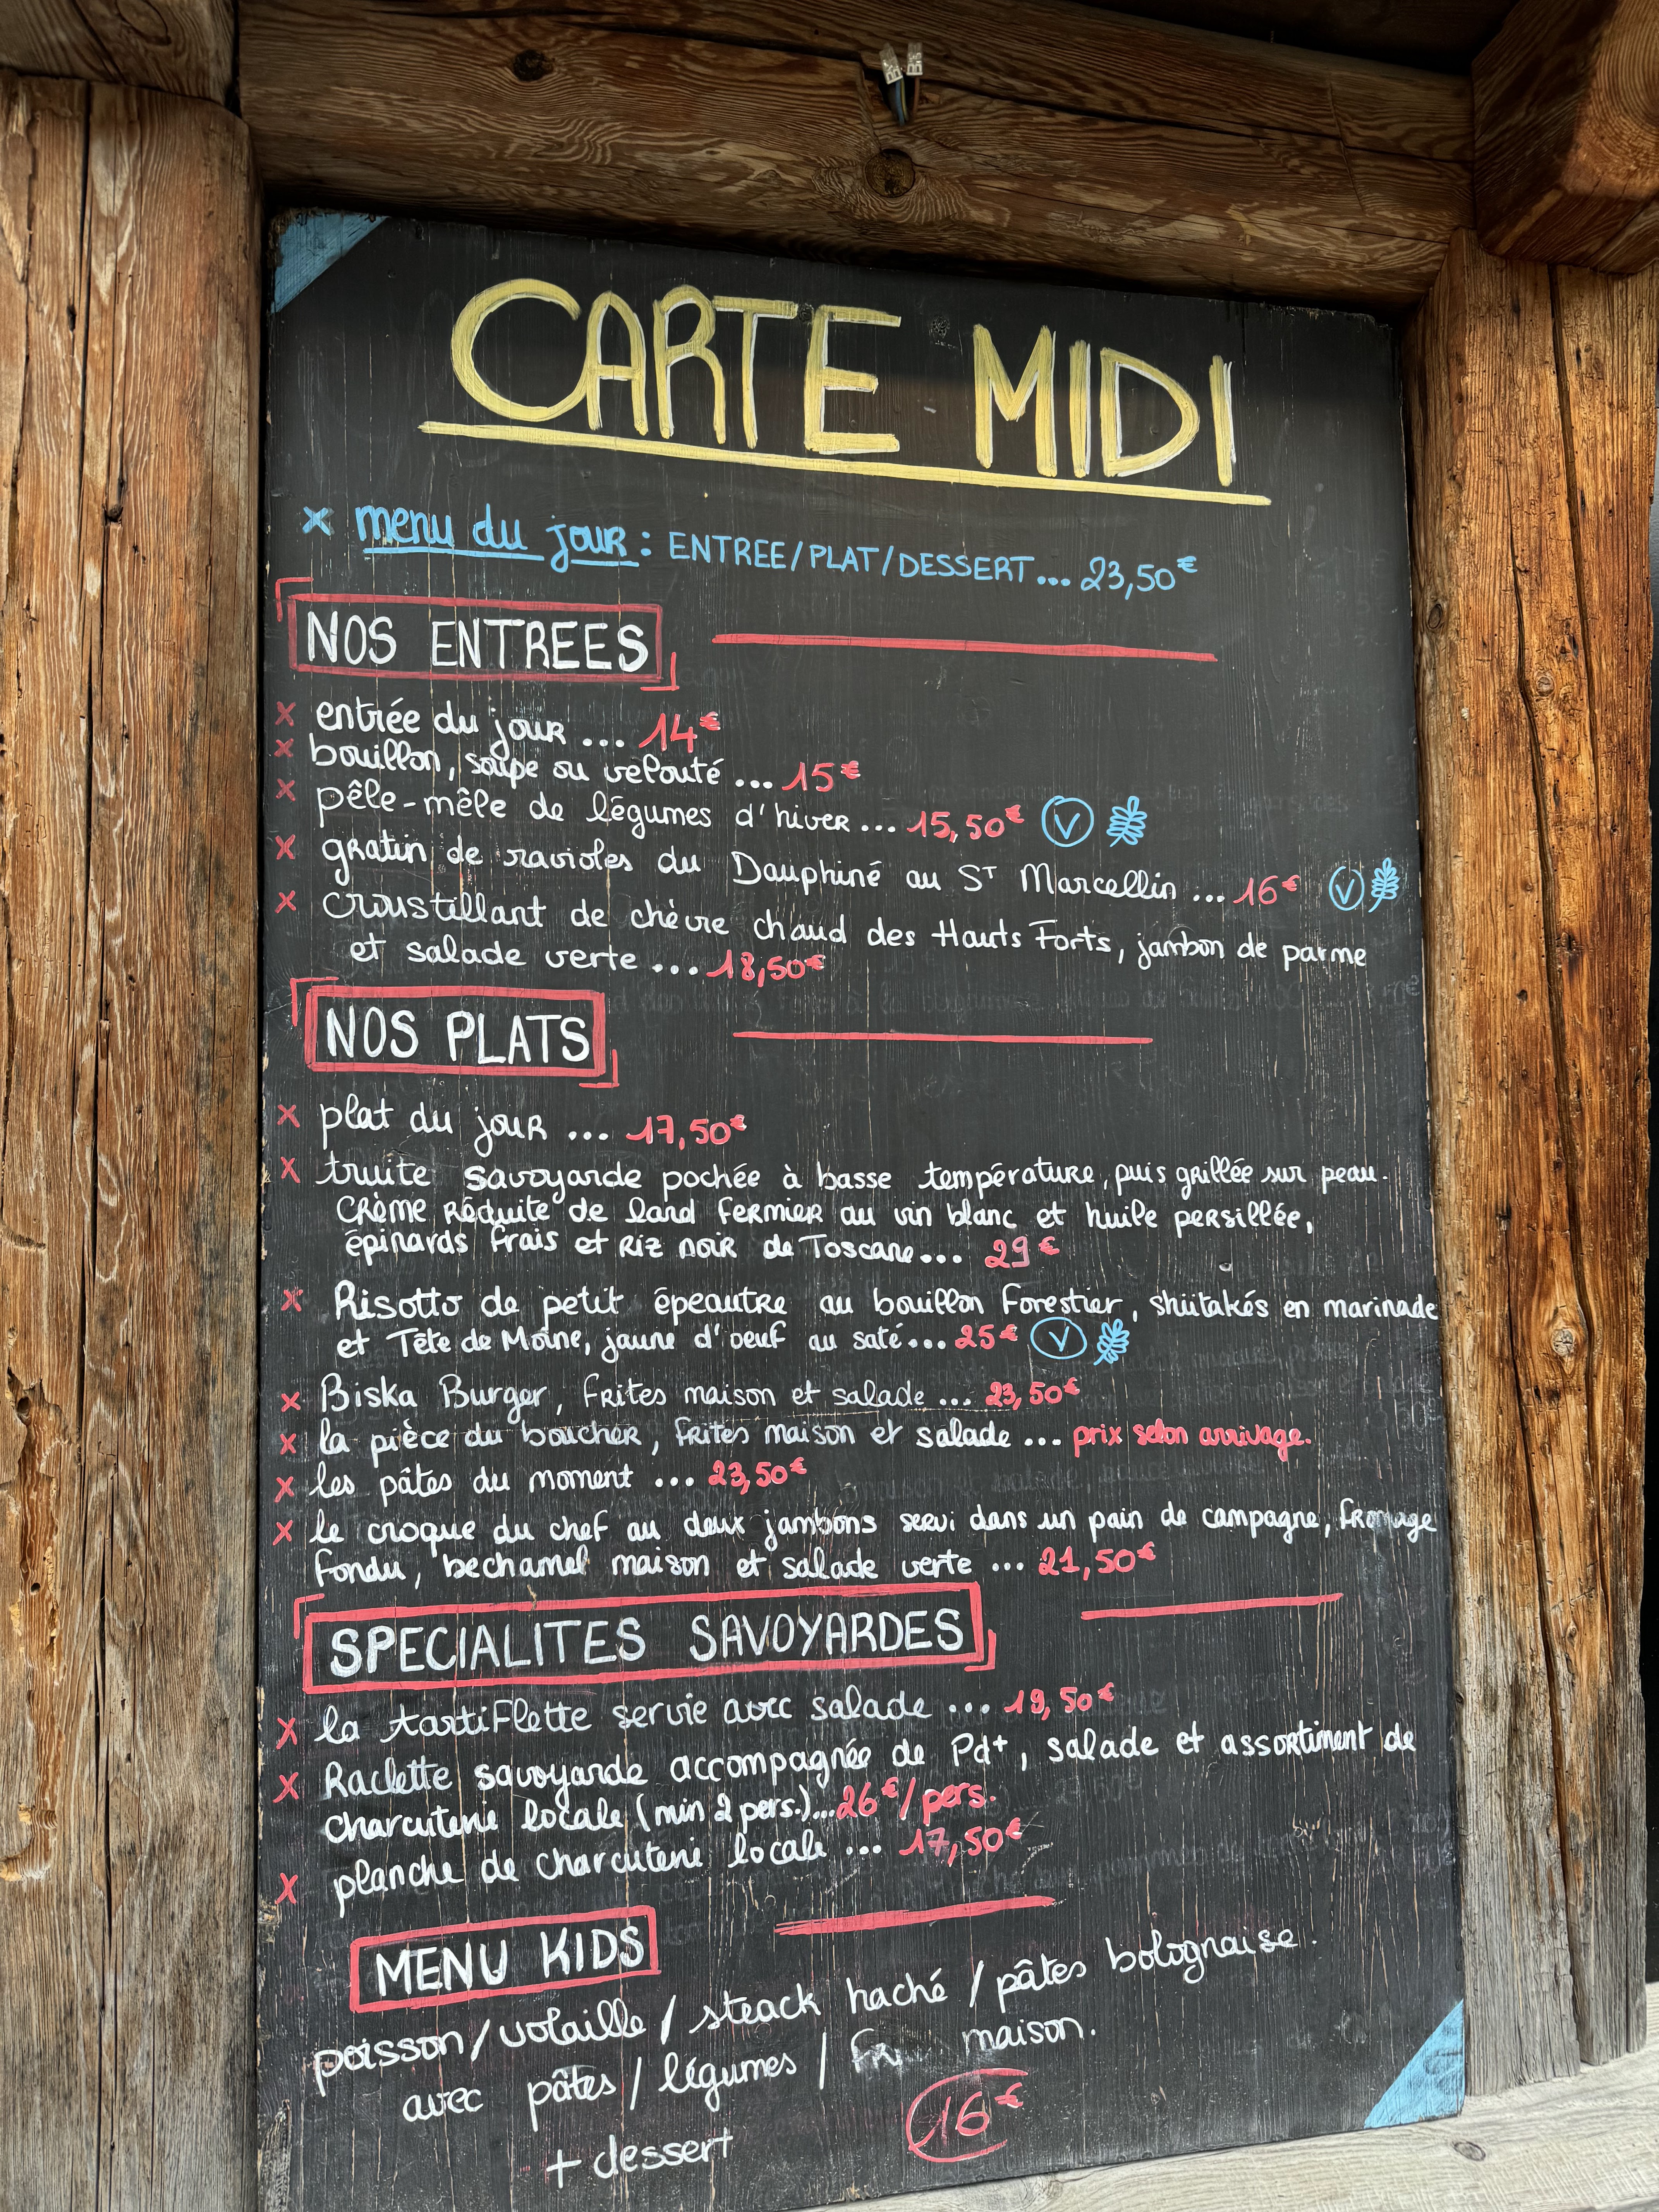 CARTE MIDI
x menu du jour : ENTREE/PLAT/DESSERT... 23,50€
NOS ENTREES
x entrée du jour ... 14€
x bouillon, soupe ou velouté ... 15€
x pêle-mêle de légumes d'hiver ... 15,50€ V
x gratin de ravioles du Dauphiné au ST Marcellin ... 16€ V
x croustillant de chèvre chaud des Hauts Forts, jambon de parme
et salade verte ... 18,50€
NOS PLATS
x plat du jour ... 17,50€
x truite savoyarde pochée à basse température, puis grillée sur peau.
Crème réduite de lard fermier au vin blanc et huile persillée,
épinards frais et riz noir de Toscane... 29€
x Risotto de petit épeautre au bouillon forestier, shiitakés en marinade
et Tête de Moine, jaune d'oeuf au saté... 25€ V
x Biska Burger, frites maison et salade ... 23,50€
x la pièce du boucher, frites maison et salade ... prix selon arrivage.
x les pâtes du moment ... 23,50€
x le croque du chef au deux jambons servi dans un pain de campagne, fromage
fondu, bechamel maison et salade verte ... 21,50€
SPECIALITES SAVOYARDES
x la tartiflette servie avec salade ... 19,50€
x Raclette savoyarde accompagnée de Pd+, salade et assortiment de
charcuterie locale (min 2 pers.)...26€/pers.
x planche de charcuterie locale ... 17,50€
MENU KIDS
poisson/volaille/steack haché/pâtes bolognaise.
avec pâtes/légumes/ maison.
+ dessert 16€